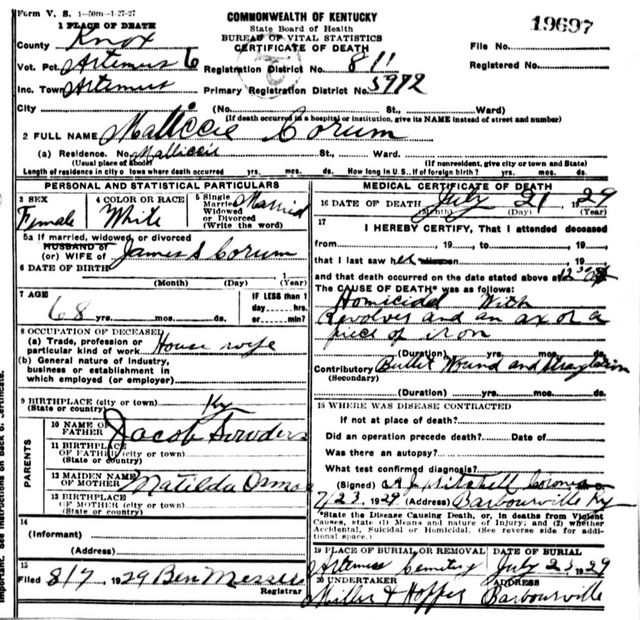 Form V. S. 1-50m-1-27-27
COMMONWEALTH OF KENTUCKY
State Board of Health
BUREAU OF VITAL STATISTICS
CERTIFICATE OF DEATH
19697
1 PLACE OF DEATH
County Knox
File No.
Vot. Pct. Artemus 6
Registration District No. 811
Registered No.
Inc. Town Artemus
Primary Registration District No. 5972
City (No. St., Ward)
(If death occurred in a hospital or institution, give its NAME instead of street and number)
2 FULL NAME Malliccie Corum
(a) Residence. No. St., Ward.
(Usual place of abode) (If nonresident, give city or town and State)
Length of residence in city or town where death occurred yrs. mos. ds. How long in U. S., if of foreign birth? yrs. mos. ds.
PERSONAL AND STATISTICAL PARTICULARS
3 SEX Female
4 COLOR OR RACE White
5 Single Married Widowed or Divorced (Write the word) Married
5a If married, widowed, or divorced
HUSBAND of
(or) WIFE of James S Corum
6 DATE OF BIRTH
(Month) (Day) (Year)
7 AGE 68 yrs. mos. ds.
IF LESS than 1 day hrs. or min.?
8 OCCUPATION OF DECEASED
(a) Trade, profession or particular kind of work House wife
(b) General nature of industry, business or establishment in which employed (or employer)
9 BIRTHPLACE (city or town) Ky
(State or country)
PARENTS
10 NAME OF FATHER Jacob Sowders
11 BIRTHPLACE OF FATHER (city or town)
(State or country)
12 MAIDEN NAME OF MOTHER Matilda
13 BIRTHPLACE OF MOTHER (city or town)
(State or country)
14
(Informant)
(Address)
15
Filed 8/7, 1929 Ben Messer
Registrar
MEDICAL CERTIFICATE OF DEATH
16 DATE OF DEATH July 21 1929
(Month) (Day) (Year)
17
I HEREBY CERTIFY, That I attended deceased
from , 19 , to , 19 ,
that I last saw her alive on , 19 ,
and that death occurred on the date stated above at 12
The CAUSE OF DEATH* was as follows:
Homicidal With
Revolver and an ax or a
piece of iron
(Duration) yrs. mos. ds.
Contributory Bullet Wound and
(Secondary)
(Duration) yrs. mos. ds.
18 WHERE WAS DISEASE CONTRACTED
If not at place of death?
Did an operation precede death? Date of
Was there an autopsy?
What test confirmed diagnosis?
(Signed) A. L. Mitchell Coroner
7/23, 1929 (Address) Barbourville Ky
*State the Disease Causing Death, or, in deaths from Violent
Causes, state (1) Means and nature of Injury; and (2) whether
Accidental, Suicidal or Homicidal. (See reverse side for addi-
tional space.)
19 PLACE OF BURIAL OR REMOVAL Artemus Cemetery
DATE OF BURIAL July 23 1929
20 UNDERTAKER Miller & Hopper
ADDRESS Barbourville